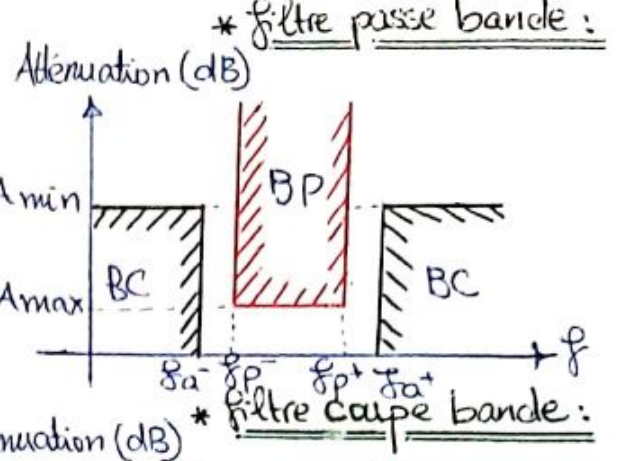 * filtre passe bande :
Atténuation (dB)
BP
Amin
BC
BC
Amax
fa- fp- fp+ fa+
f
* filtre coupe bande :
nuation (dB)